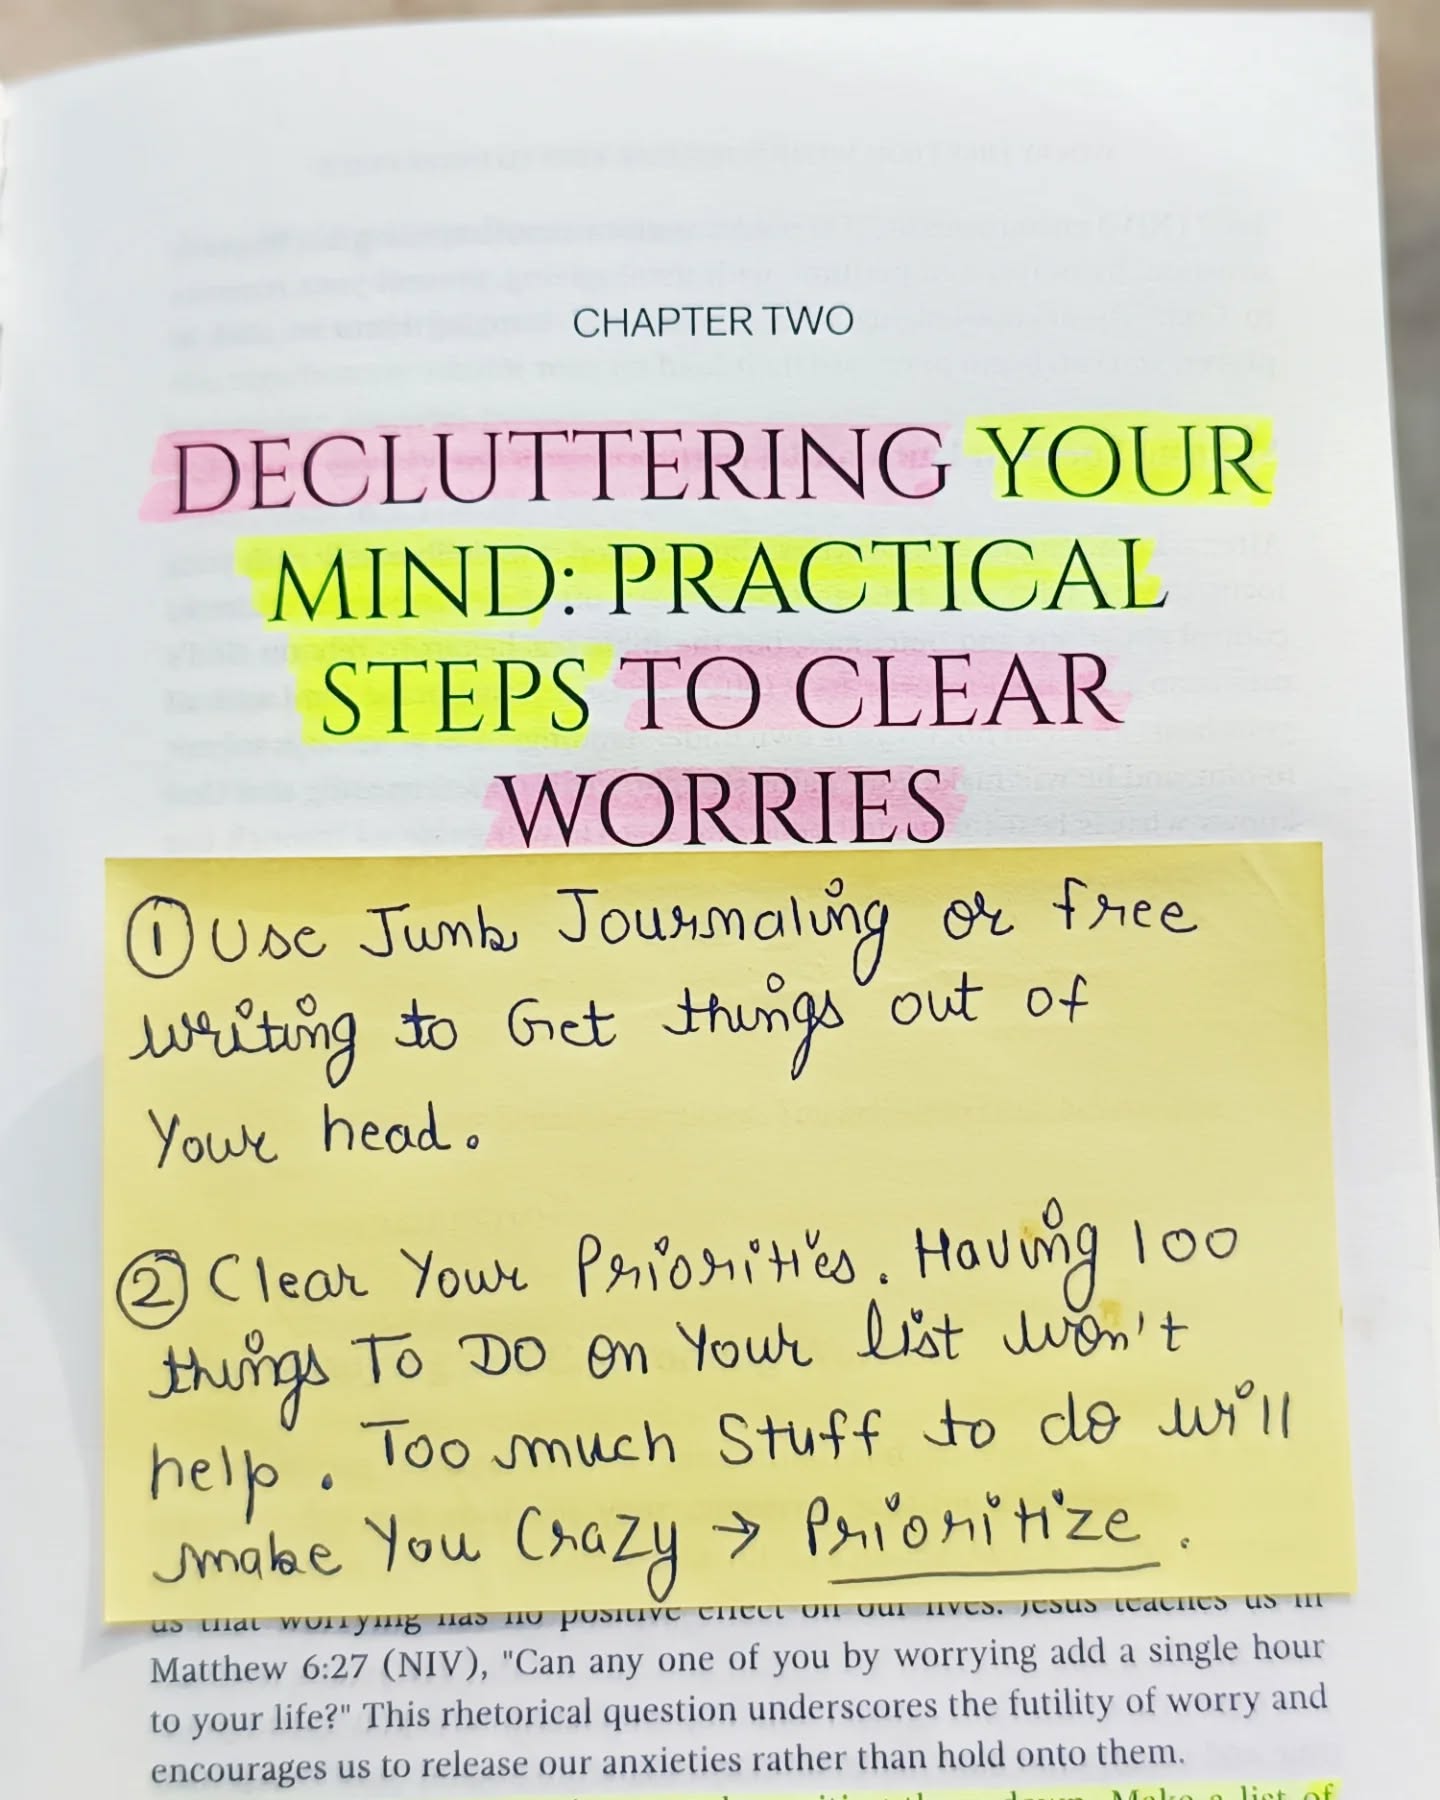 CHAPTER TWO
DECLUTTERING YOUR
MIND: PRACTICAL
STEPS TO CLEAR
WORRIES
① Use Junk Journaling or free
writing to Get things out of
Your head.
② Clear Your Priorities. Having 100
things To DO on Your list won't
help. Too much Stuff to do will
make You Crazy → Prioritize.
us that worrying has no positive effect on our lives. Jesus teaches us in
Matthew 6:27 (NIV), "Can any one of you by worrying add a single hour
to your life?" This rhetorical question underscores the futility of worry and
encourages us to release our anxieties rather than hold onto them.
down. Make a list of